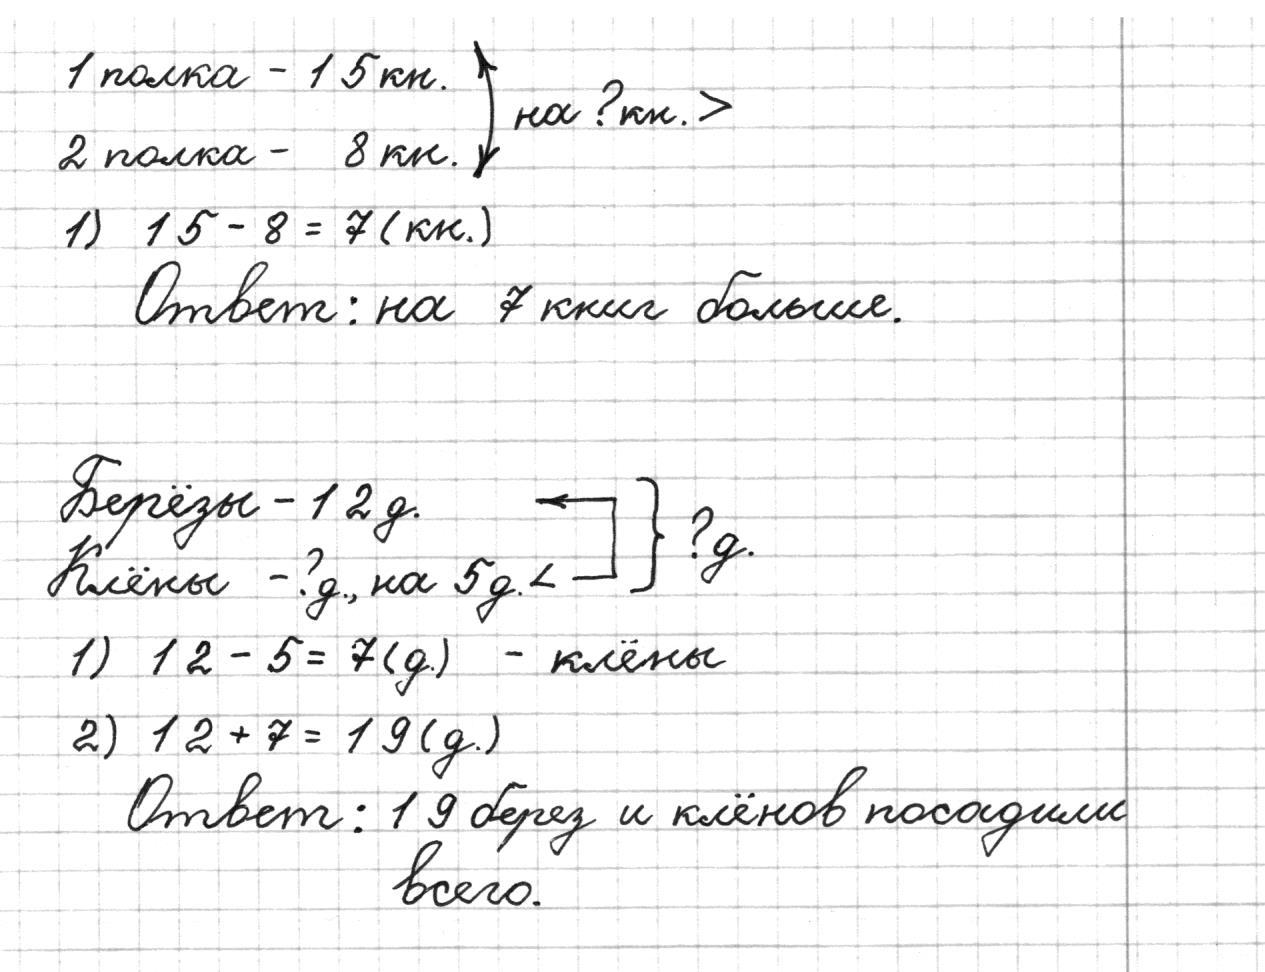 1 полка - 15 кн.
на ? кн. >
2 полка - 8 кн.
1) 15 - 8 = 7 (кн.)
Ответ: на 7 книг больше.
Берёзы - 12 д.
? д.
Клёны - ? д., на 5 д. <
1) 12 - 5 = 7 (д.) - клёны
2) 12 + 7 = 19 (д.)
Ответ: 19 берез и клёнов посадили
всего.